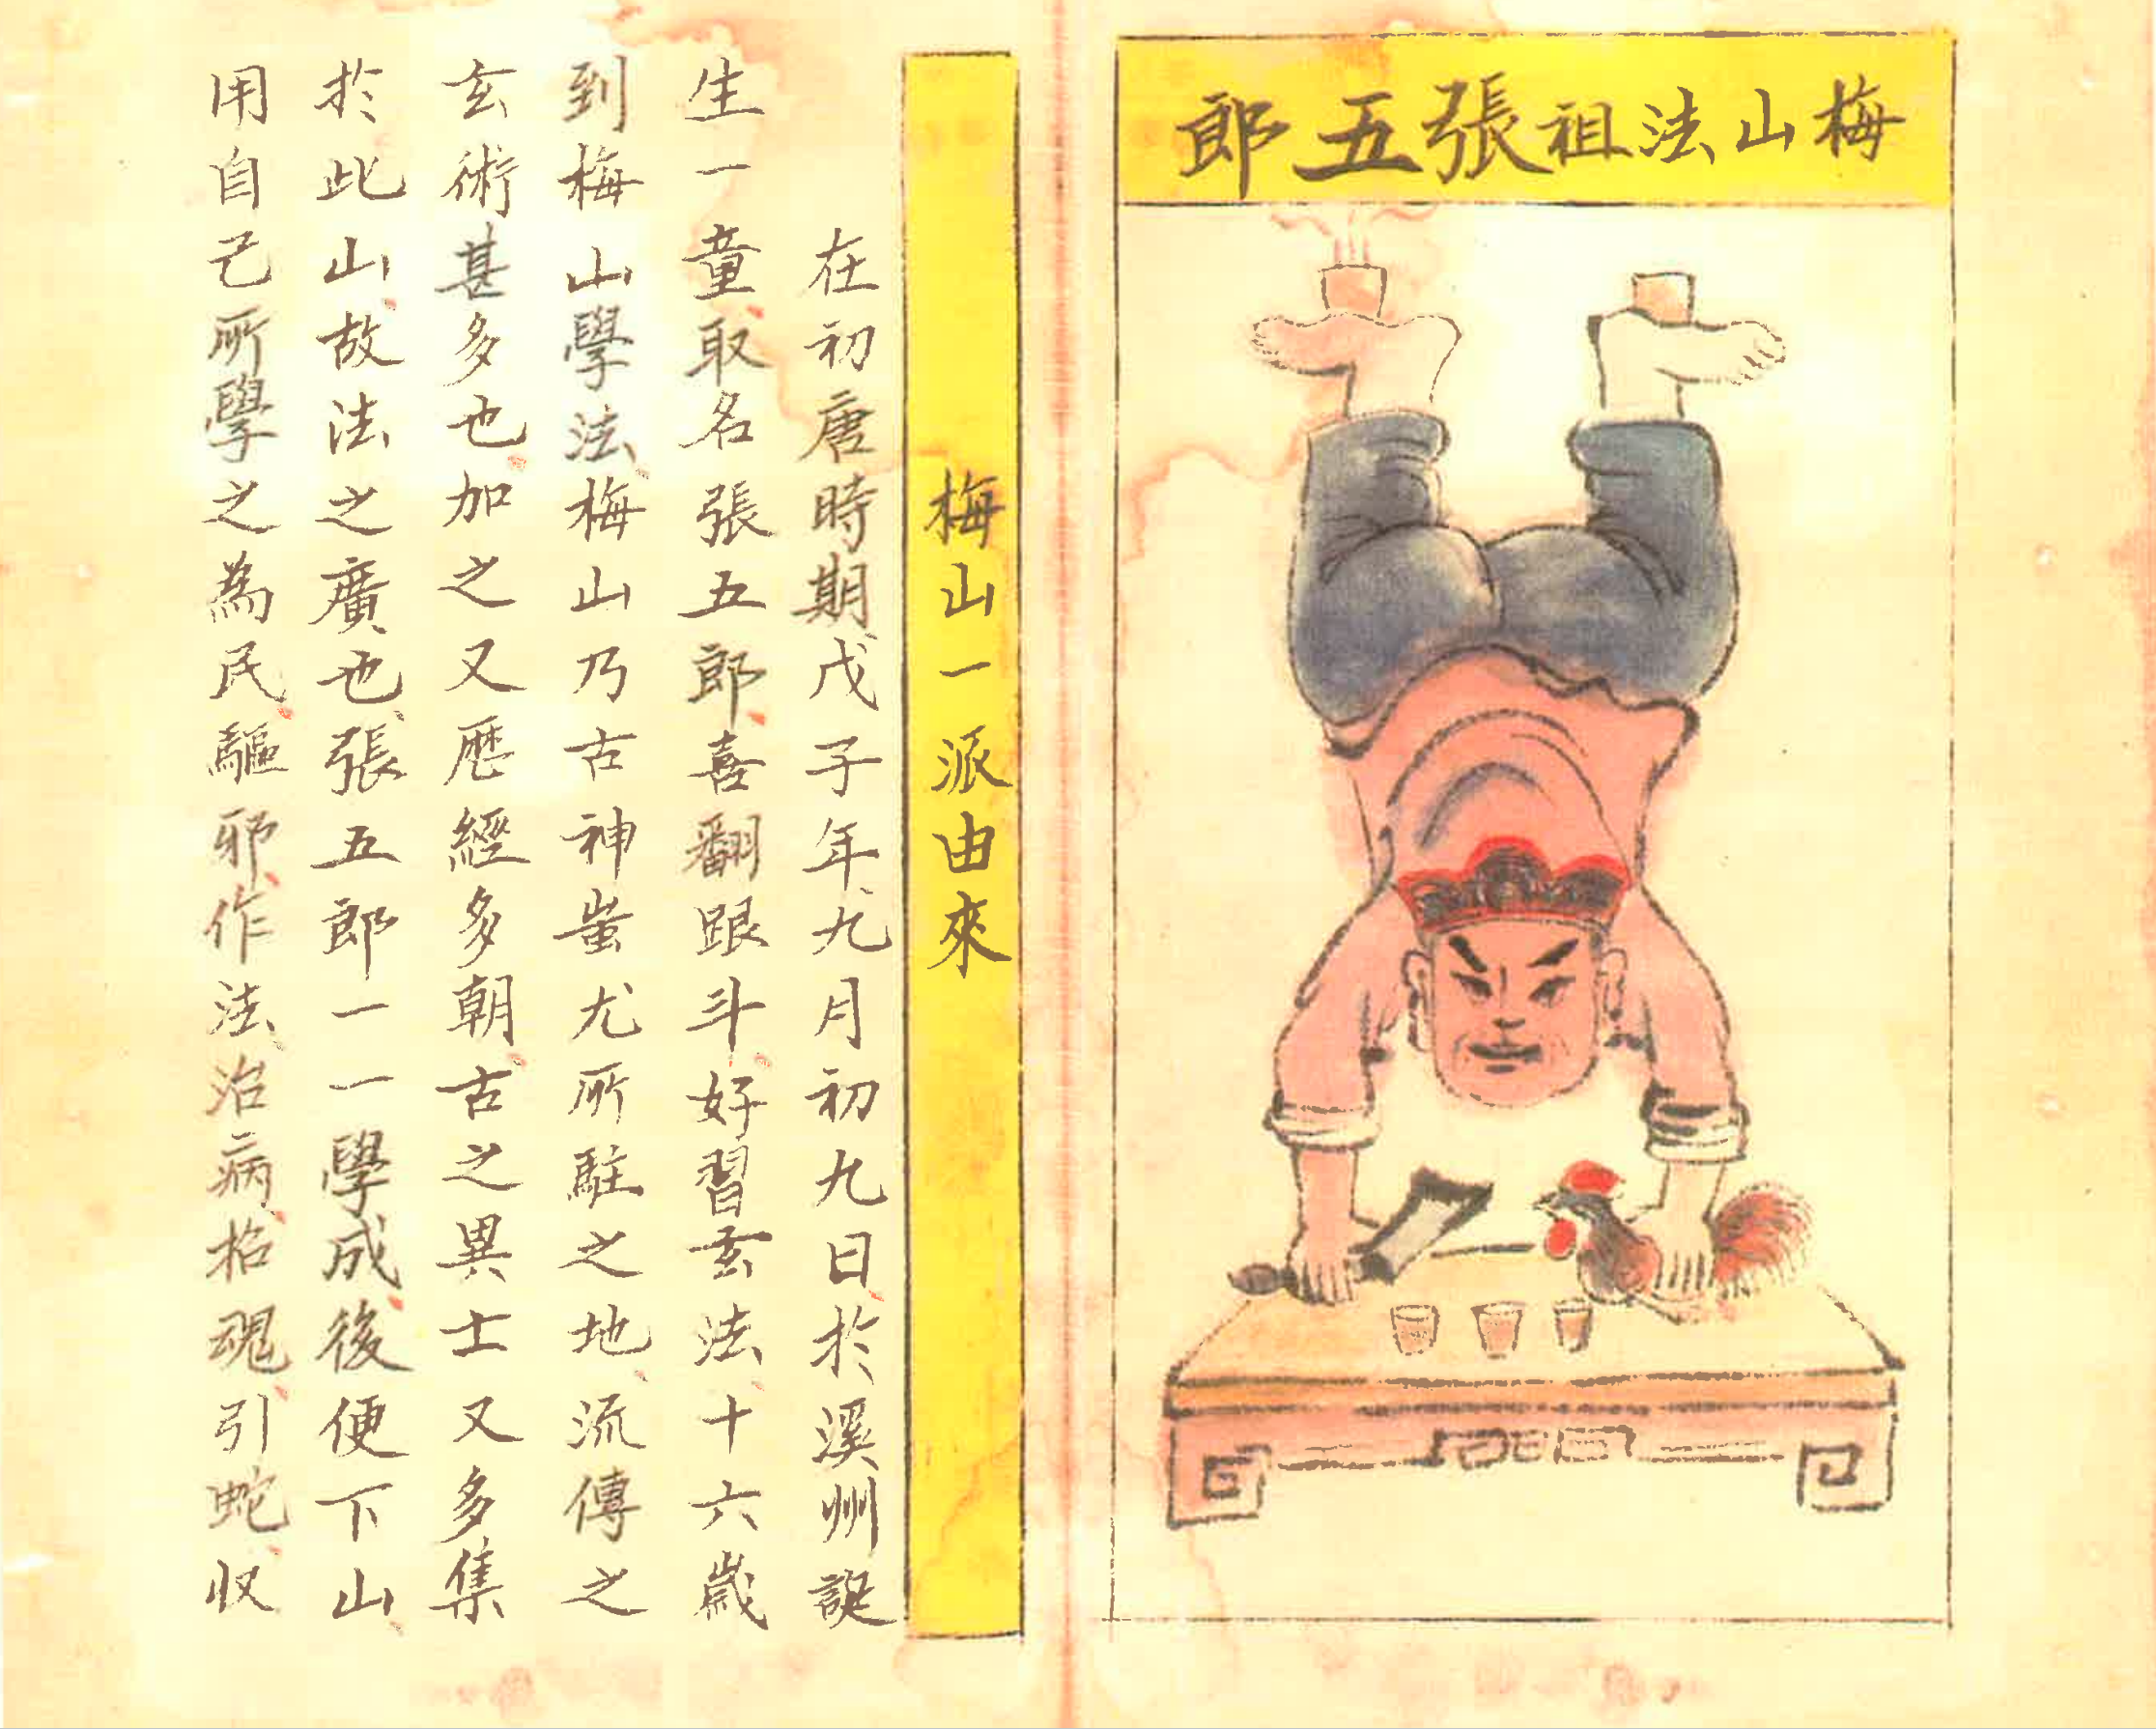 梅山法祖張五郎
梅山一派由來
在初唐時期戊子年、九月初九日、於溪州誕
生一童、取名張五郎、喜翻跟斗、好習玄法、十六歲
到梅山學法、梅山乃古神蚩尤所駐之地、流傳之
玄術甚多也、加之又歷經多朝、古之異士又多集
於此山、故法之廣也、張五郎一一學成、後便下山、
用自己所學之為民、驅邪、作法、治病、招魂、引蛇、收